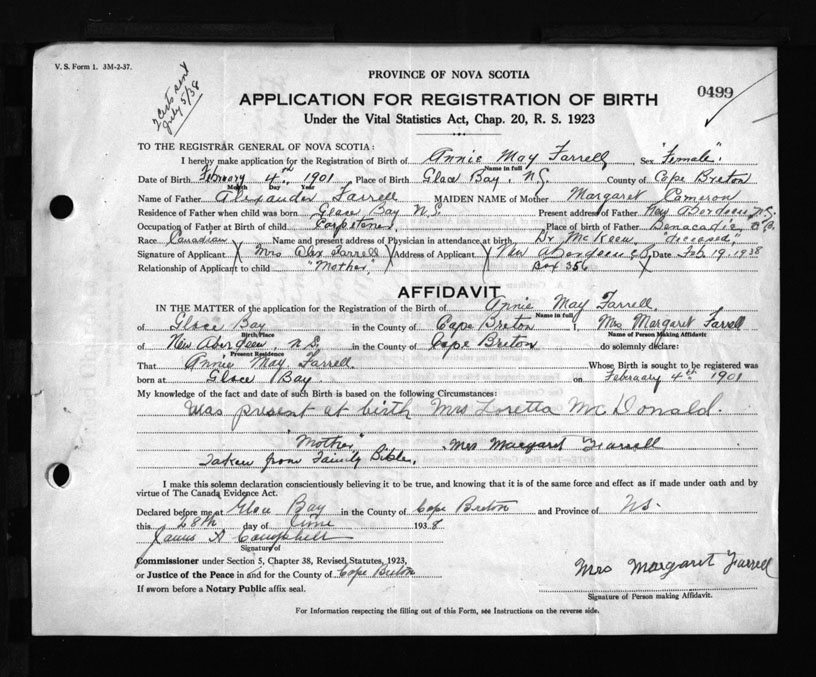 V. S. Form 1. 3M-2-37.
2 certs sent
July 5/38
PROVINCE OF NOVA SCOTIA
0499
APPLICATION FOR REGISTRATION OF BIRTH
Under the Vital Statistics Act, Chap. 20, R. S. 1923
TO THE REGISTRAR GENERAL OF NOVA SCOTIA:
I hereby make application for the Registration of Birth of Annie May Farrell, Sex "Female".
Name in full
Date of Birth February 4th, 1901 Place of Birth Glace Bay, N.S. County of Cape Breton
Month Day Year
Name of Father Alexander Farrell MAIDEN NAME of Mother Margaret Cameron
Residence of Father when child was born Glace Bay N.S. Present address of Father New Aberdeen N.S.
Occupation of Father at Birth of child Carpenter, Place of birth of Father Benacadie, C.B.
Race Canadian Name and present address of Physician in attendance at birth, Dr McKeen "deceased"
Signature of Applicant Mrs Alex Farrell Address of Applicant New Aberdeen C.B. Date Feb 19, 1938
Relationship of Applicant to child "Mother," Box 356
AFFIDAVIT
IN THE MATTER of the application for the Registration of the Birth of Annie May Farrell.
Name in full
of Glace Bay in the County of Cape Breton I, Mrs Margaret Farrell
Birth Place Name of Person Making Affidavit
of New Aberdeen, N.S. in the County of Cape Breton do solemnly declare:
Present Residence
That Annie May Farrell. Whose Birth is sought to be registered was
born at Glace Bay. on February 4th 1901
My knowledge of the fact and date of such Birth is based on the following Circumstances:
Was present at birth Mrs Loretta McDonald.
"Mother" Mrs Margaret Farrell
Taken from Family Bible.
I make this solemn declaration conscientiously believing it to be true, and knowing that it is of the same force and effect as if made under oath and by
virtue of The Canada Evidence Act.
Declared before me at Glace Bay in the County of Cape Breton and Province of N.S.
this 28th day of June 1938
James A Campbell
Signature of
Commissioner under Section 5, Chapter 38, Revised Statutes, 1923,
or Justice of the Peace in and for the County of Cape Breton
Mrs Margaret Farrell
If sworn before a Notary Public affix seal.
Signature of Person making Affidavit.
For Information respecting the filling out of this Form, see Instructions on the reverse side.